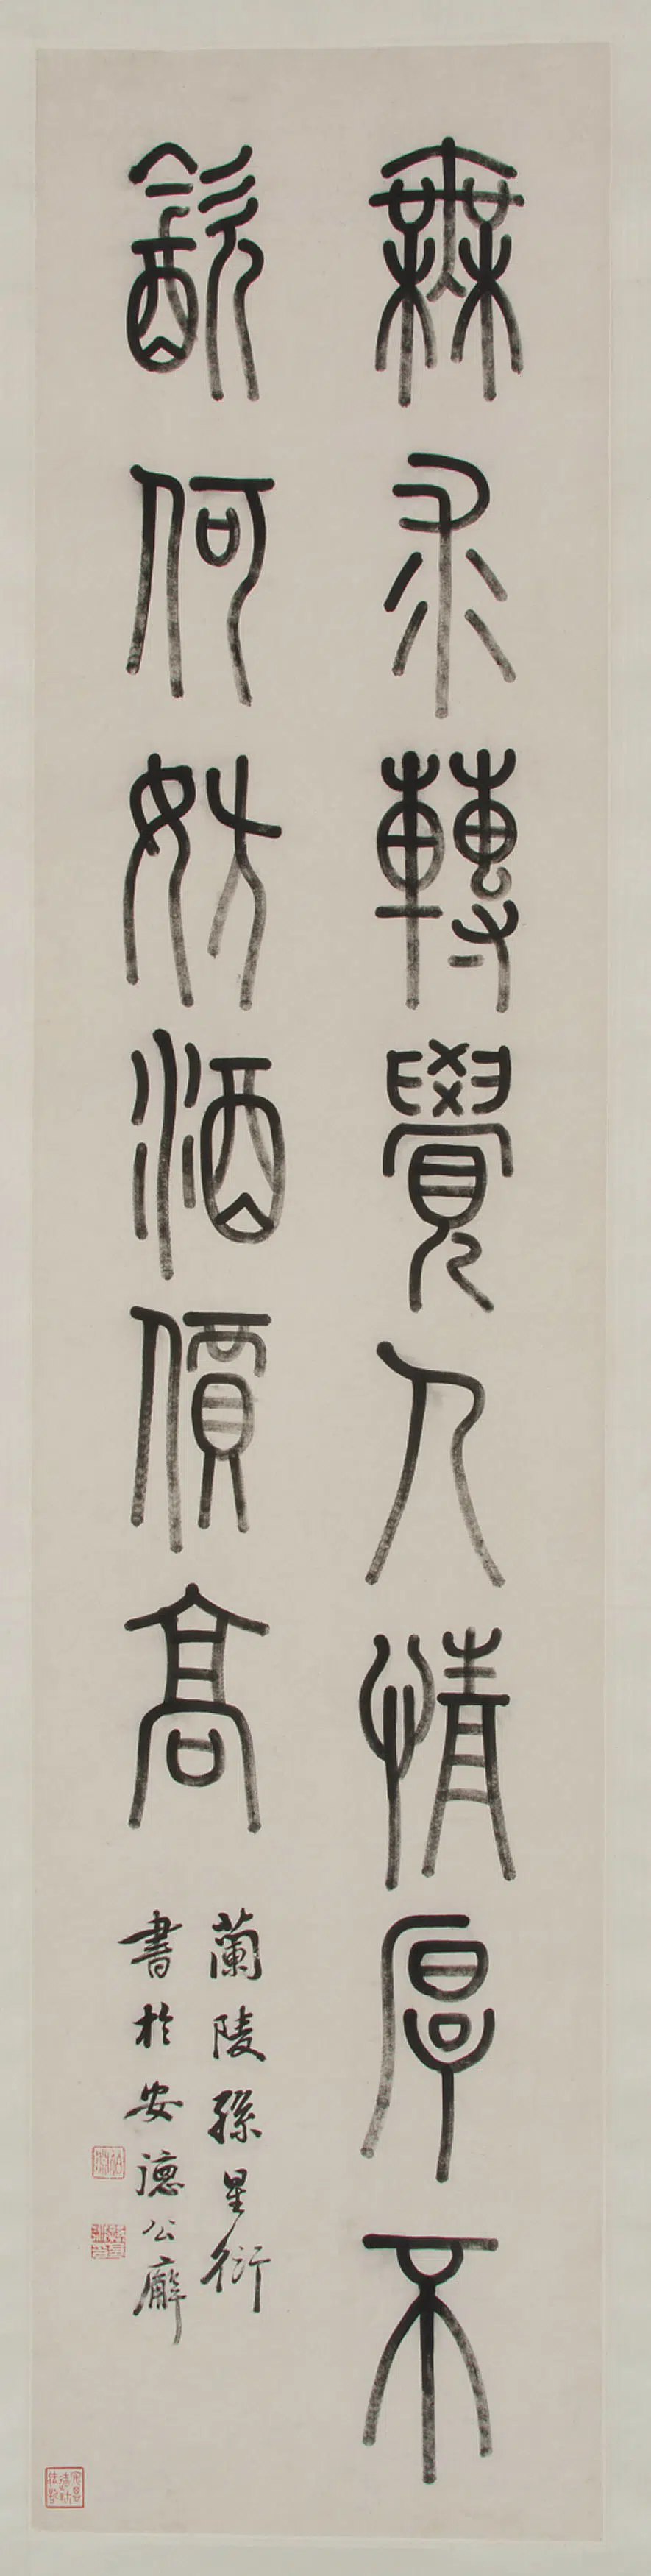 無求轉覺人情厚不
㱃何妨酒價高
蘭陵孫星衍
書於安德公廨